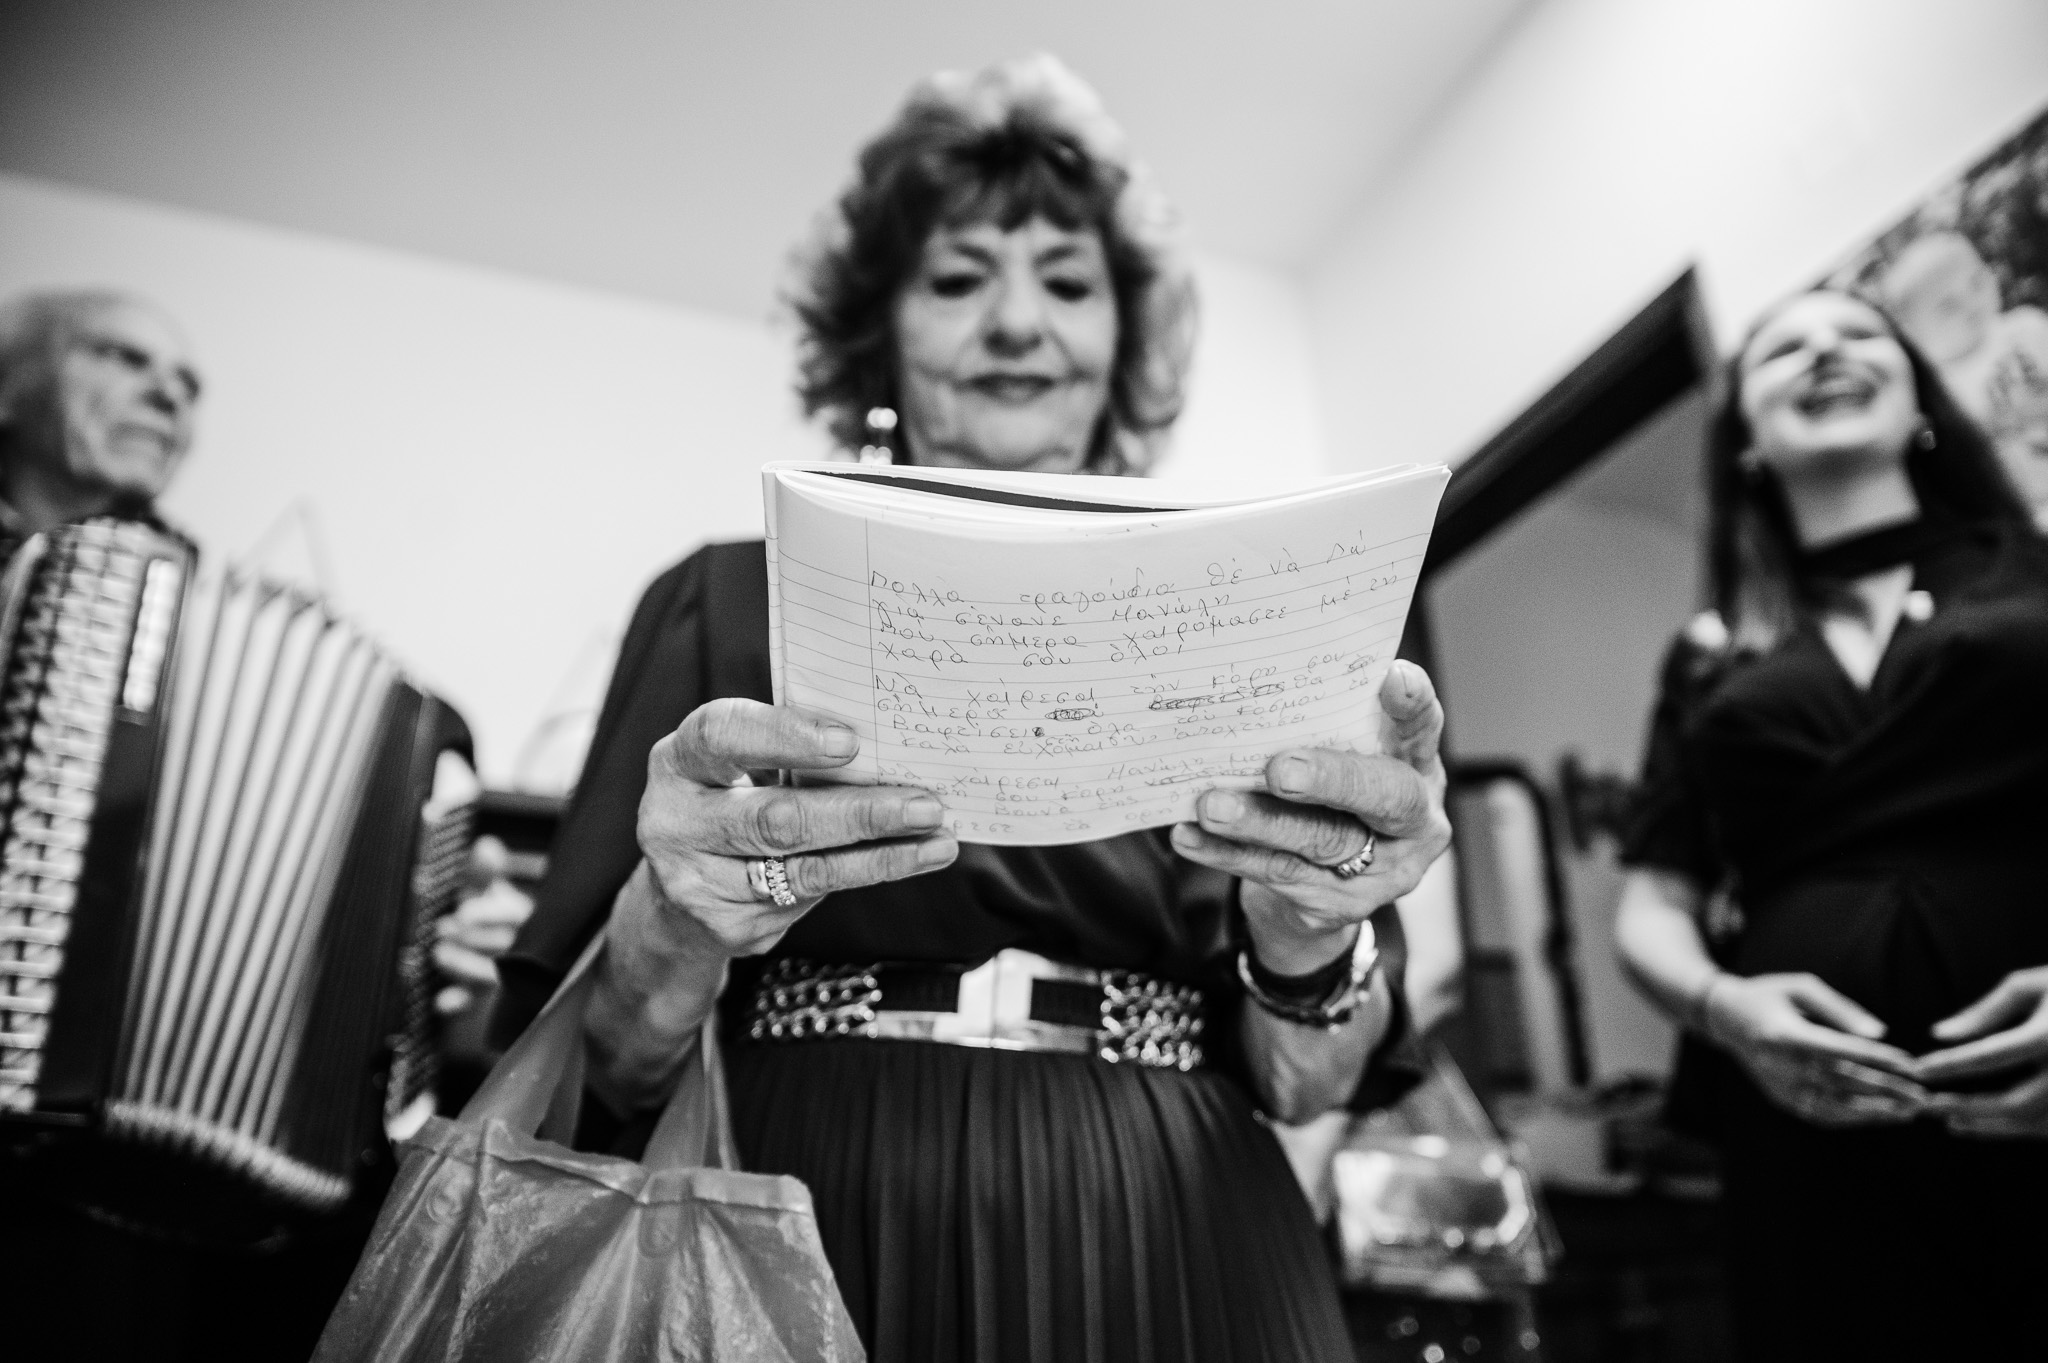 Πολλὰ τραγούδια θὲ νὰ πὼ
γιὰ σένανε Μανώλη
Ποὺ σήμερα χαιρόμαστε μὲ τὴ
χαρὰ σου ὅλοι
Νὰ χαίρεσαι τὴν κόρη σου
σήμερα θὰ
Βαφτίσεις ὅλα τοῦ κόσμου τὰ
καλὰ εὔχομαι ν' ἀποχτήσει
Νὰ χαίρεσαι Μανώλη μου
σου κόρη
Βουνὰ